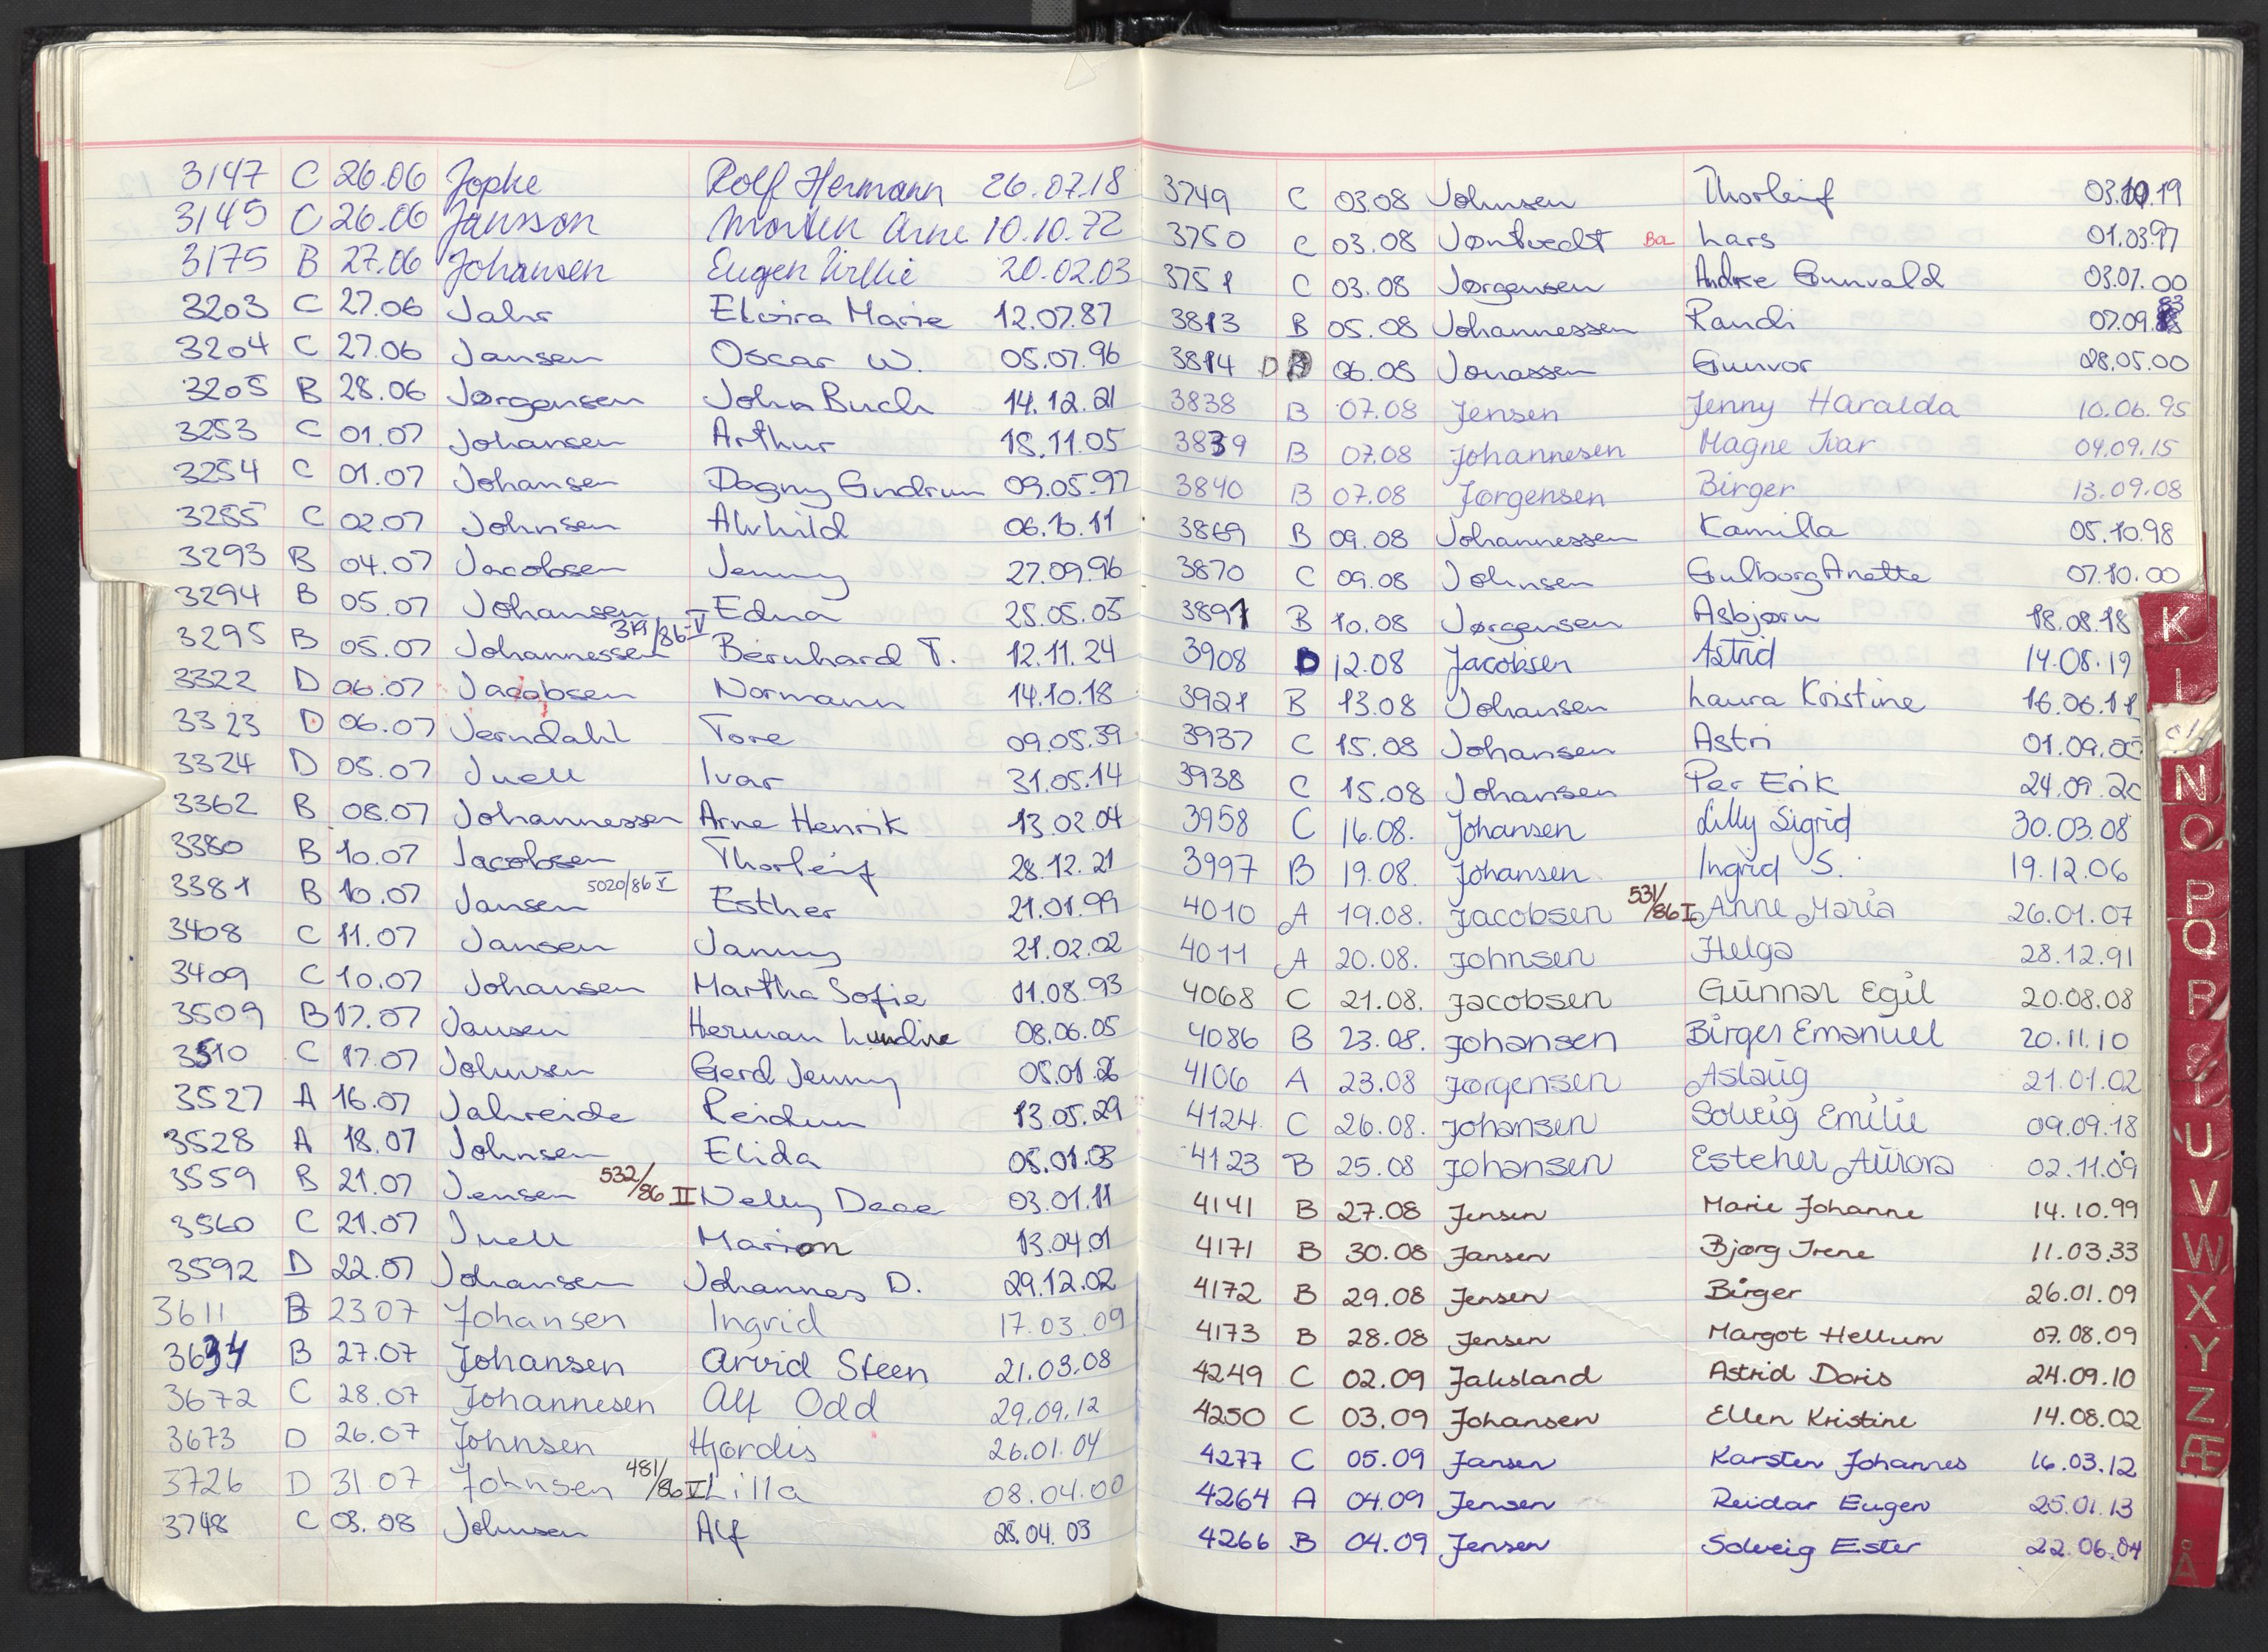 3147 C 26.06 Jopke Rolf Hermann 26.07.18
3145 C 26.06 Jansson Morten Arne 10.10.72
3175 B 27.06 Johansen Eugen Willie 20.02.03
3203 C 27.06 Jahr Elvira Marie 12.07.87
3204 C 27.06 Jansen Oscar W. 05.07.96
3205 B 28.06 Jørgensen John Buch 14.12.21
3253 C 01.07 Johansen Arthur 18.11.05
3254 C 01.07 Johansen Dagny Gudrun 09.05.97
3255 C 02.07 Johnsen Alvhild 06.10.11
3293 B 04.07 Jacobsen Jenny 27.09.96
3294 B 05.07 Johansen Edna 25.05.05
3295 B 05.07 Johannessen 319/86-V Bernhard T. 12.11.24
3322 D 06.07 Jacobsen Normann 14.10.18
3323 D 06.07 Jerndahl Tore 09.05.39
3324 D 05.07 Juell Ivar 31.05.14
3362 B 08.07 Johannessen Arne Henrik 13.02.04
3380 B 10.07 Jacobsen Thorleif 28.12.21
3381 B 10.07 Jansen 5020/86 V Esther 21.01.99
3408 C 11.07 Jansen Janny 21.02.02
3409 C 10.07 Johansen Martha Sofie 01.08.93
3509 B 17.07 Jansen Herman Lundine 08.06.05
3510 C 17.07 Johnsen Gerd Jenny 05.01.26
3527 A 16.07 Jahreide Reidun 13.05.29
3528 A 18.07 Johnsen Elida 05.01.03
3559 B 21.07 Jensen 532/86 II Nelly Daae 03.01.11
3560 C 21.07 Juell Marion 13.04.01
3592 D 22.07 Johansen Johannes D. 29.12.02
3611 B 23 07 Johansen Ingrid 17.03.09
3634 B 27.07 Johansen Arvid Steen 21.03.08
3672 C 28.07 Johannesen Alf Odd 29.09.12
3673 D 26.07 Johnsen Hjørdis 26.01.04
3726 D 31.07 Johnsen 481/86 V Lilla 08.04.00
3748 C 03.08 Johnsen Alf 25.04.03
3749 C 03.08 Johnsen Thorleif 03.10.19
3750 C 03.08 Jøntvedt Ba Lars 01.03.97
3751 C 03.08 Jørgensen Andre Gunvald 03.07.00
3813 B 05.08 Johannessen Randi 07.09.83
3814 D 06.08 Jonassen Gunvor 28.05.00
3838 B 07.08 Jensen Jenny Haralda 10.06.95
3839 B 07.08 Johannesen Magne Ivar 04.09.15
3840 B 07.08 Jørgensen Birger 13.09.08
3869 B 09.08 Johannessen Kamilla 05.10.98
3870 C 09.08 Johnsen Gulborg Anette 07.10.00
3891 B 10.08 Jørgensen Asbjørn 18.08.18
3908 D 12.08 Jacobsen Astrid 14.08.19
3921 B 13.08 Johansen Laura Kristine 16.06.11
3937 C 15.08 Johansen Astri 01.09.
3938 C 15.08 Johansen Per Erik 24.09.20
3958 C 16.08. Johansen Lilly Sigrid 30.03.08
3997 B 19.08. Johansen Ingrid S. 19.12.06
4010 A 19.08. Jacobsen 531/86 I Anne Maria 26.01.07
4011 A 20.08. Johnsen Helga 28.12.91
4068 C 21.08. Jacobsen Gunnar Egil 20.08.08
4086 B 23.08. Johansen Birger Emanuel 20.11.10
4106 A 23.08 Jørgensen Aslaug 21.01.02
4124 C 26.08. Johansen Solveig Emilie 09.09.18
4123 B 25.08 Johansen Esteher Aurora 02.11.09
4141 B 27.08 Jensen Marie Johanne 14.10.99
4171 B 30.08 Jansen Bjørg Irene 11.03.33
4172 B 29.08 Jensen Birger 26.01.09
4173 B 28.08 Jensen Margot Hellum 07.08.09
4249 C 02.09 Jaksland Astrid Doris 24.09.10
4250 C 03.09 Johansen Ellen Kristine 14.08.02
4277 C 05.09 Jansen Karsten Johannes 16.03.12
4264 A 04.09 Jensen Reidar Eugen 25.01.13
4266 B 04.09 Jensen Solveig Ester 22.06.04
K
L
N
O
P
Q
R
S
T
U
V
W
X
Y
Z
Æ
Å